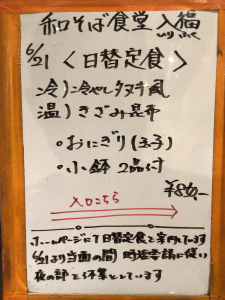 和そば食堂 入福
6/21 〈日替定食〉
冷)冷やしタヌキ風
温)きざみ昆布
・おにぎり(玉子)
・小鉢 2品付
¥870-
入口こちら
ホームページにて日替定食を案内しています
6/21より当面の間 時短要請に従い
夜の部を休業としています